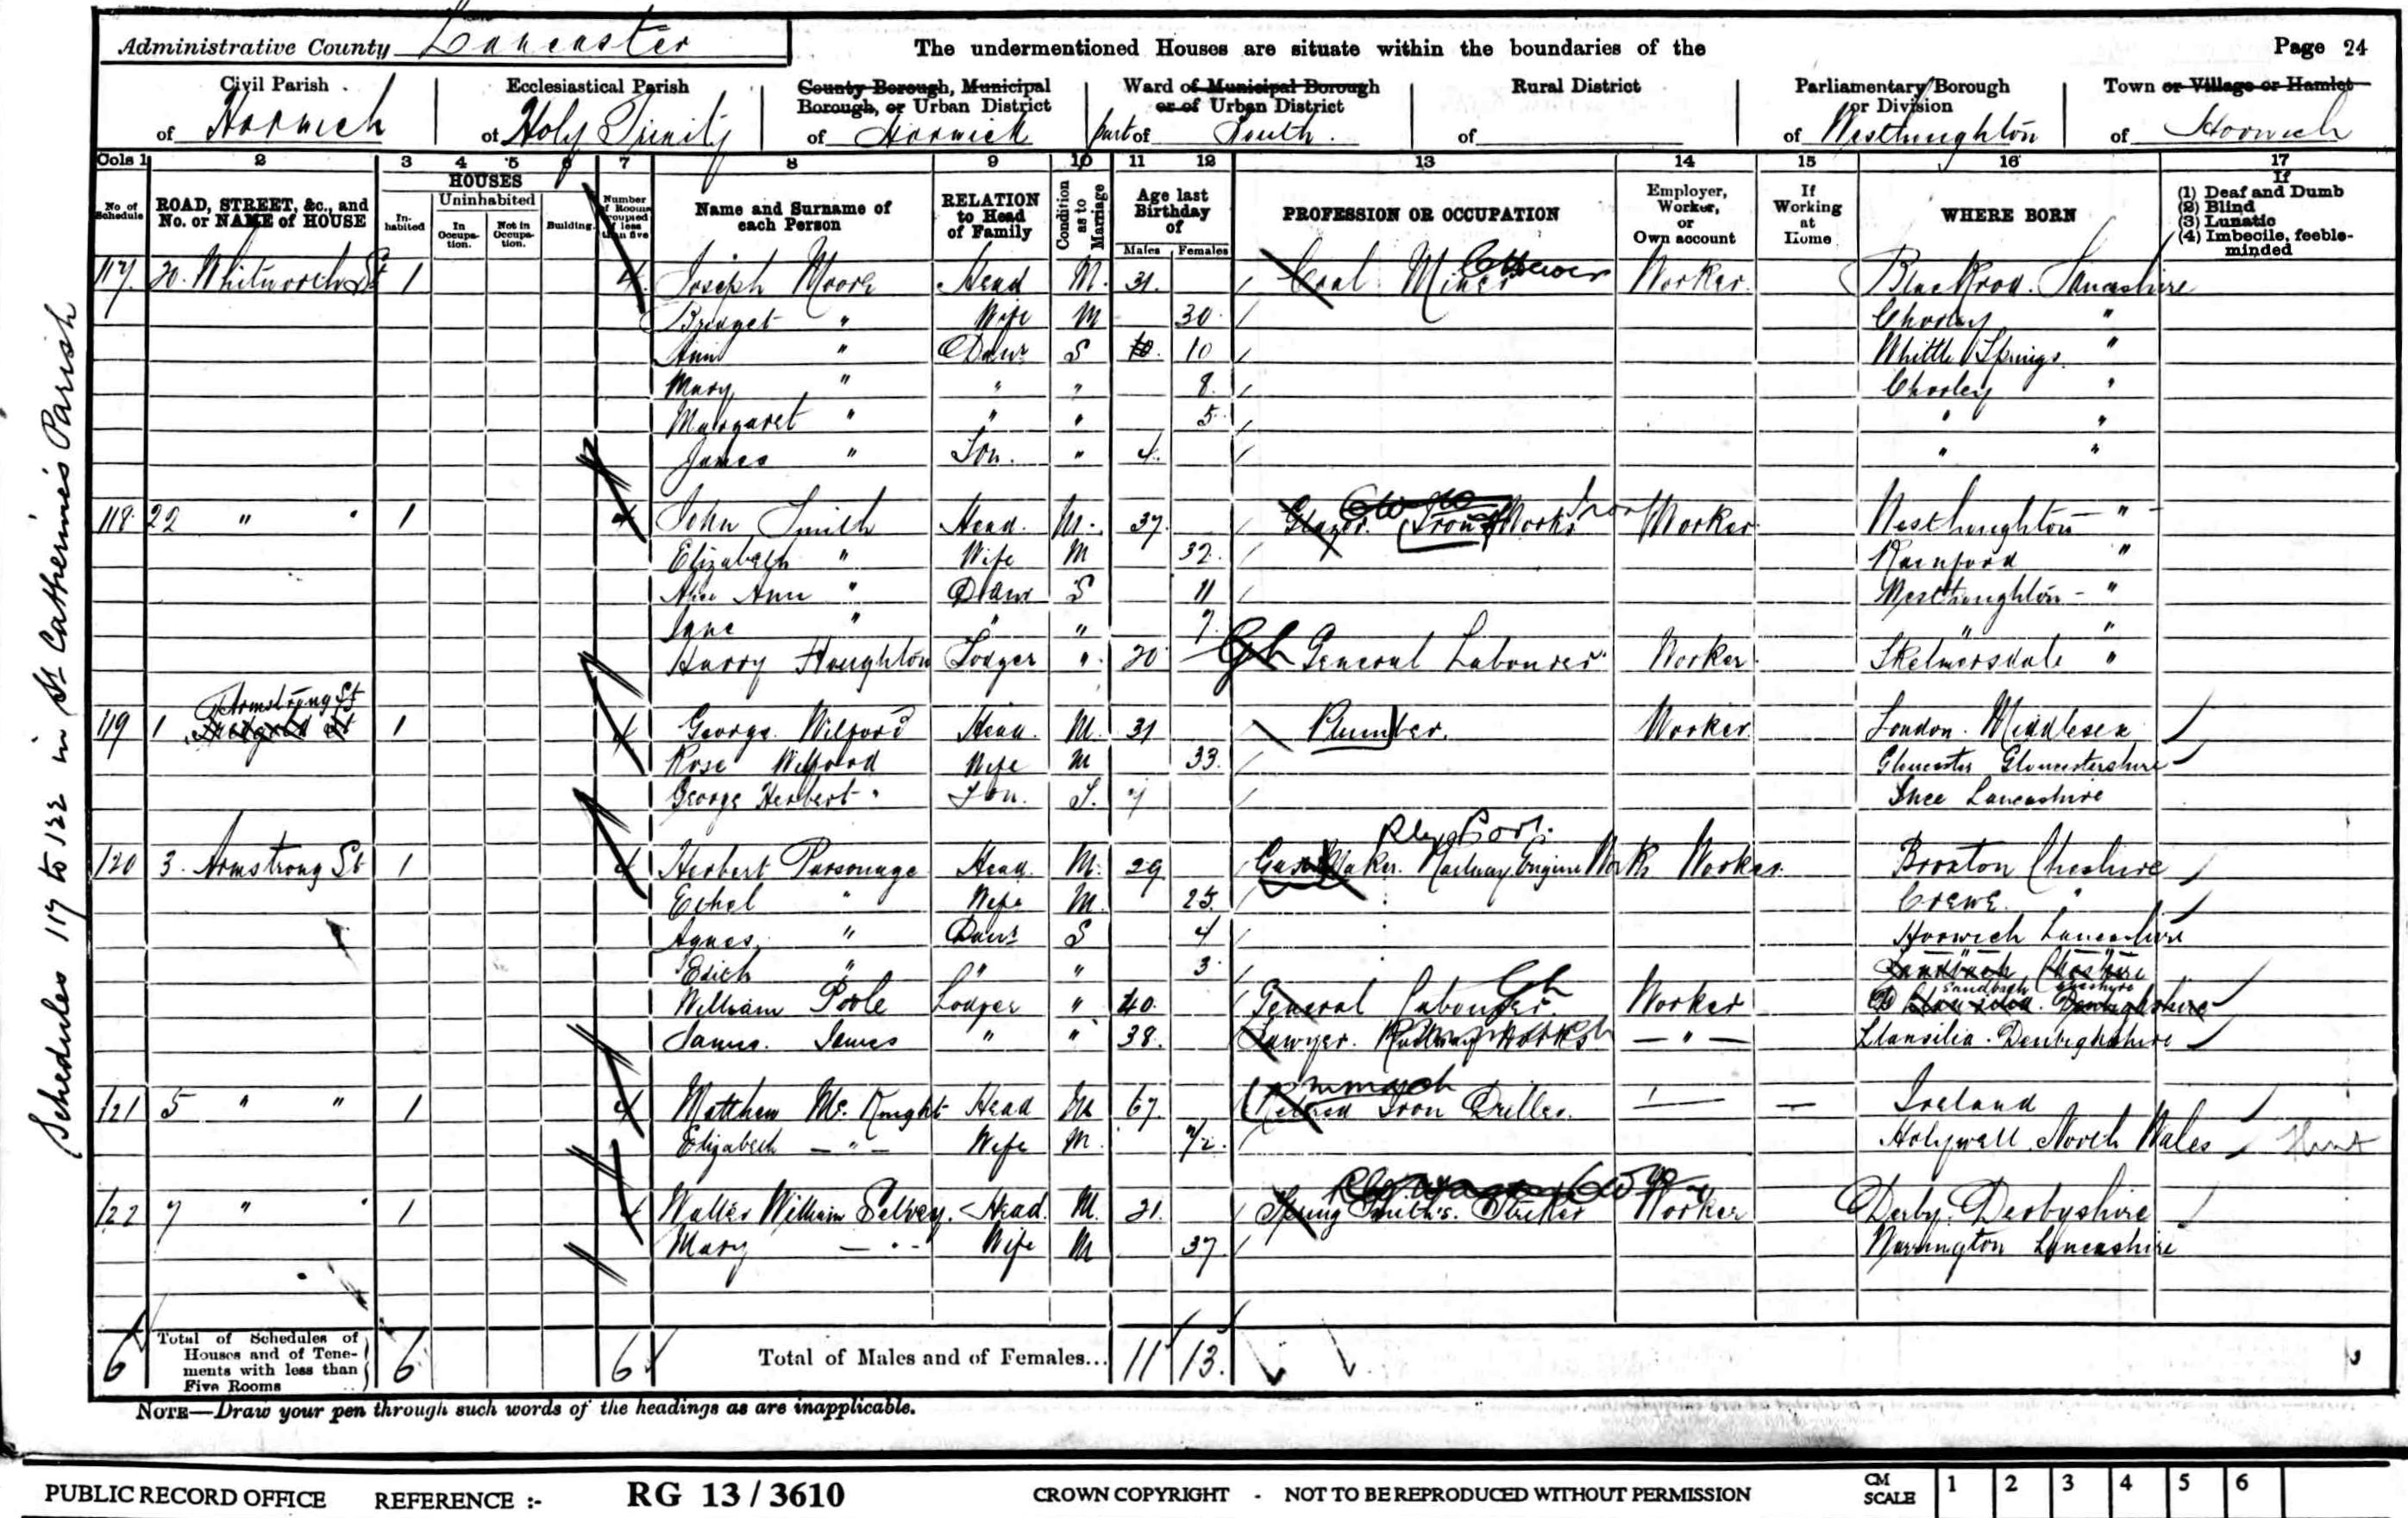 Administrative County Lancaster
The undermentioned Houses are situate within the boundaries of the
Page 24
Civil Parish of Horwich
Ecclesiastical Parish of Holy Trinity
County Borough, Municipal Borough, or Urban District of Horwich
Ward of Municipal Borough or of Urban District part of South.
Rural District of
Parliamentary Borough or Division of Westhoughton
Town or Village or Hamlet of Horwich
Cols 1 2 3 4 5 6 7 8 9 10 11 12 13 14 15 16 17
No of Schedule
ROAD, STREET, &c., and No. or NAME of HOUSE
HOUSES
Inhabited
Uninhabited
In Occupation.
Not in Occupation.
Building.
Number of Rooms occupied if less than five
Name and Surname of each Person
RELATION to Head of Family
Condition as to Marriage
Age last Birthday of
Males Females
PROFESSION OR OCCUPATION
Employer, Worker, or Own account
If Working at Home
WHERE BORN
If
(1) Deaf and Dumb
(2) Blind
(3) Lunatic
(4) Imbecile, feeble-minded
117. 20. Whitworth St 1 4 Joseph Moore Head M. 31. Coal Miner Hewer Worker. Blackrod. Lancashire
Bridget " Wife M 30. Chorley "
Ann " Daur S 10 Whittle Springs "
Mary " " " 8. Chorley "
Margaret " " " 5. " "
James " Son. " 4. " "
118. 22 " 1 4 John Smith Head. M. 37. Iron Works Worker Westhoughton "
Elizabeth " Wife M 32. Rainford "
Alice Ann " Daur S 11 Westhoughton "
Jane " " " 7. " "
Harry Houghton Lodger " 20 Gl General Labourer Worker. Skelmersdale "
119 1 Armstrong St 1 4 George. Wilford Head. M. 31 Plumber. Worker London. Middlesex
Rose Wilford Wife M 33. Gloucester Gloucestershire
George Herbert " Son. S. 7 Ince Lancashire
120 3. Armstrong St 1 4 Herbert Parsonage Head. M. 29 Maker. Railway Engine Work Worker. Broxton Cheshire
Ethel " Wife M. 25. Crewe "
Agnes " Daur S 4 Horwich Lancashire
Edith " " " 3. " "
William Poole Lodger " 40. General Labourer. Gl Worker Sandbach Cheshire
James. James " " 38. Sawyer. Railway Works — " — Llansilin. Denbighshire
121 5 " " 1 4 Matthew Mc. Knight Head M 67. Retired Iron Driller. — — Ireland
Elizabeth — " — Wife M. 72. Holywell North Wales
122 7 " " 1 4 Walter William Selvey. Head. M. 21. Spring Smith's. Striker Worker Derby. Derbyshire
Mary — " — Wife M 37 Warrington Lancashire
Schedules 117 to 122 in St. Catherine's Parish
6 Total of Schedules of Houses and of Tenements with less than Five Rooms 6 6 Total of Males and of Females... 11 13.
NOTE—Draw your pen through such words of the headings as are inapplicable.
PUBLIC RECORD OFFICE REFERENCE :- RG 13 / 3610 CROWN COPYRIGHT - NOT TO BE REPRODUCED WITHOUT PERMISSION CM SCALE 1 2 3 4 5 6